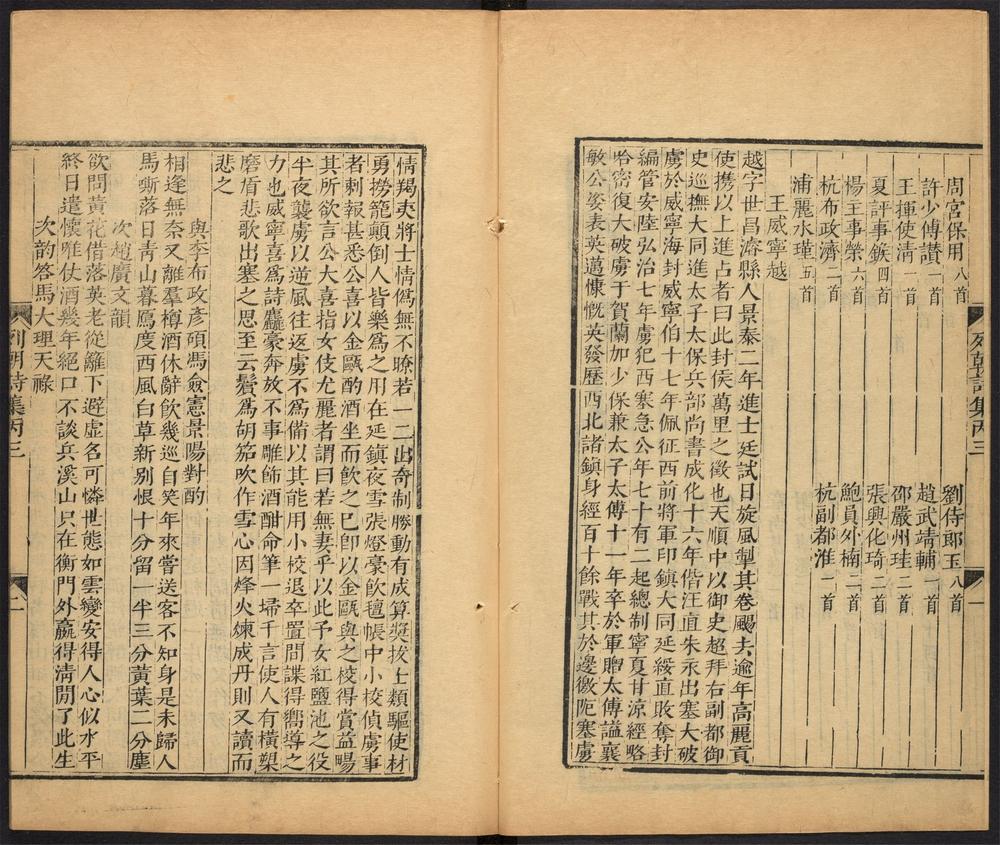 列朝詩集丙三
一
周宮保用八首
劉侍郎玉八首
許少傅讚一首
趙武靖輔一首
王揮使清一首
邵嚴州珪二首
夏評事鍭四首
張興化琦二首
楊主事榮六首
鮑員外楠二首
杭布政濟二首
杭副都淮一首
浦麗水瑾五首
王威寧越
越字世昌濬縣人景泰二年進士廷試日旋風掣其卷颺去逾年高麗貢
使携以上進占者曰此封侯萬里之徵也天順中以御史超拜右副都御
史巡撫大同進太子太保兵部尚書成化十六年偕汪直朱永出塞大破
虜於威寧海封威寧伯十七年佩征西前將軍印鎮大同延綏直敗奪封
編管安陸弘治七年虜犯西塞急公年七十有二起總制寧夏甘涼經略
哈密復大破虜于賀蘭加少保兼太子太傅十一年卒於軍贈太傅謚襄
敏公姿表英邁慷慨英發歷西北諸鎮身經百十餘戰其於邊徼阨塞虜
情羯夷將士情僞無不瞭若一二出奇制勝動有成算奬拔士類驅使材
勇撈籠顛倒人皆樂爲之用在延鎮夜雪張燈豪飲氊帳中小校偵虜事
者刺報甚悉公喜以金甌酌酒坐而飲之已卽以金甌與之校得賞益暢
其所欲言公大喜指女伎尤麗者謂曰若無妻乎以此予女紅鹽池之役
半夜襲虜以逆風往返虜不爲備以其能用小校退卒置問諜得嚮導之
力也威寧喜爲詩麤豪奔放不事雕飾酒酣命筆一埽千言使人有橫槊
磨盾悲歌出塞之思至云鬢爲胡笳吹作雪心因烽火煉成丹則又讀而
悲之
與李布政彥碩馮僉憲景陽對酌
相逢無奈又離羣樽酒休辭飲幾巡自笑年來嘗送客不知身是未歸人
馬嘶落日青山暮鴈度西風白草新别恨十分留一半三分黃葉二分塵
次趙廣文韻
欲問黃花借落英老從籬下避虛名可憐世態如雲變安得人心似水平
終日遣懷唯仗酒幾年絕口不談兵溪山只在衡門外贏得淸閒了此生
次韵答馬大理天祿
列朝詩集丙三
一